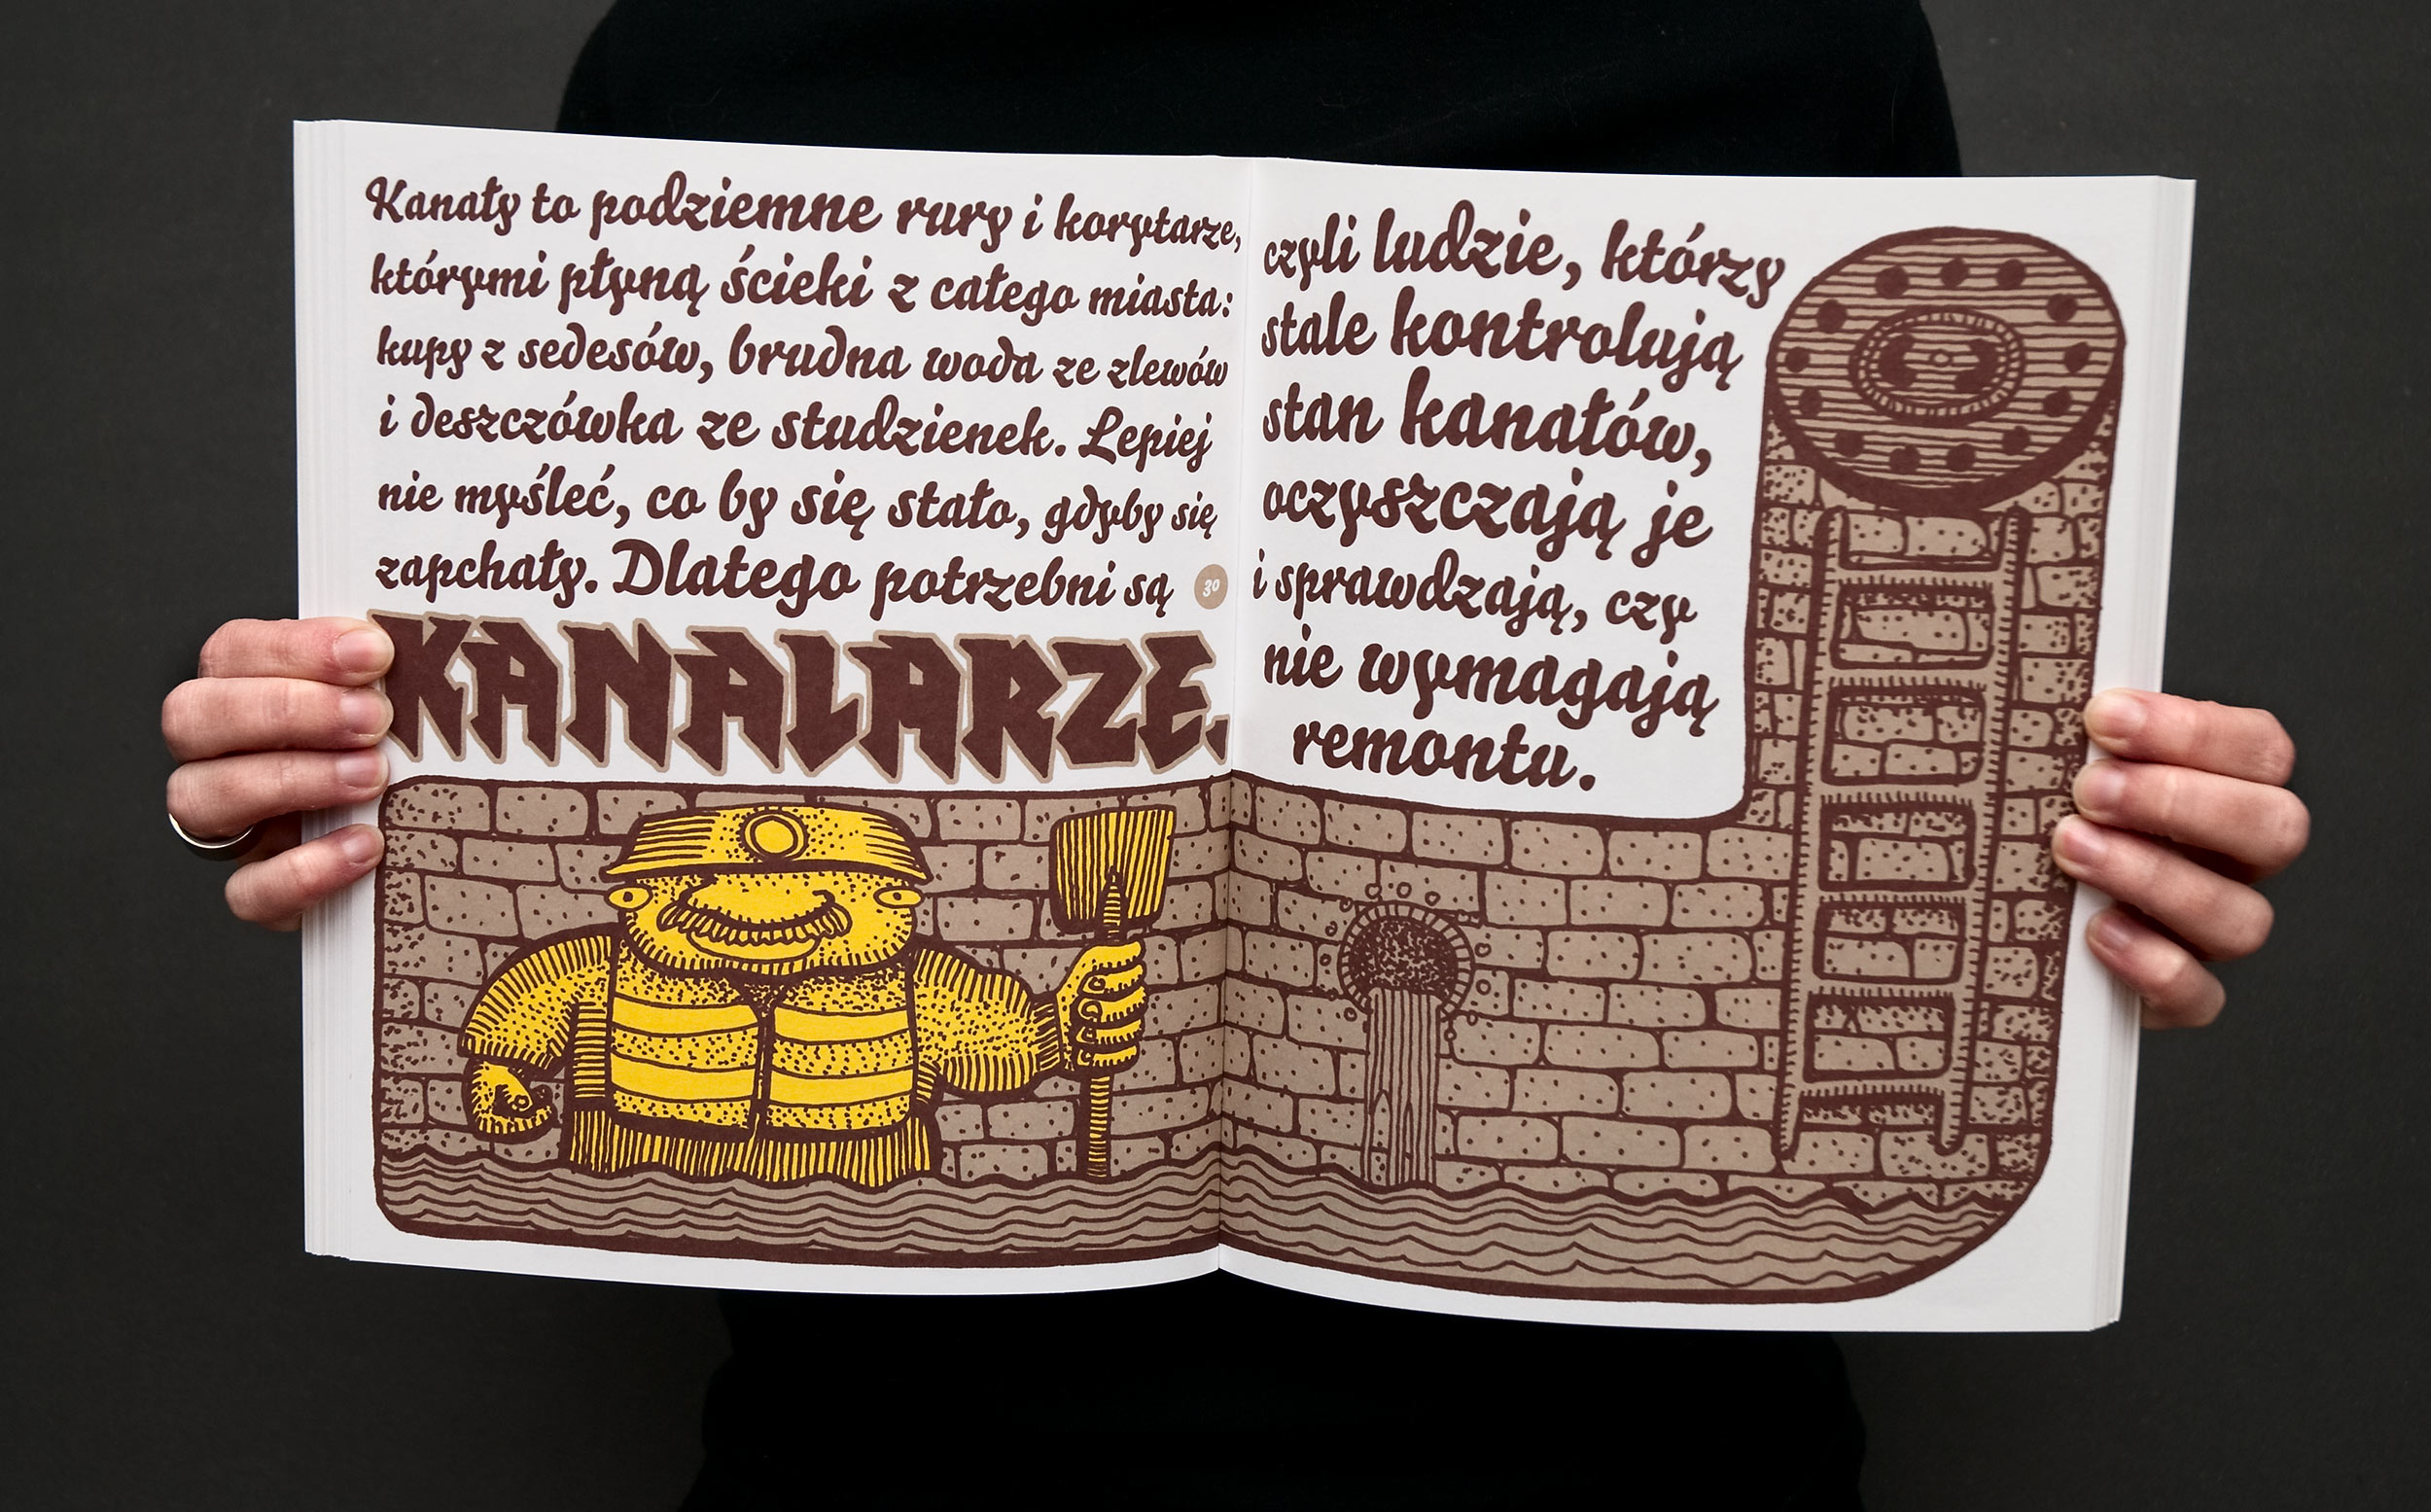 Kanały to podziemne rury i korytarze,
którymi płyną ścieki z całego miasta:
kupy z sedesów, brudna woda ze zlewów
i deszczówka ze studzienek. Lepiej
nie myśleć, co by się stało, gdyby się
zapchały. Dlatego potrzebni są
30
KANALARZE,
czyli ludzie, którzy
stale kontrolują
stan kanałów,
oczyszczają je
i sprawdzają, czy
nie wymagają
remontu.